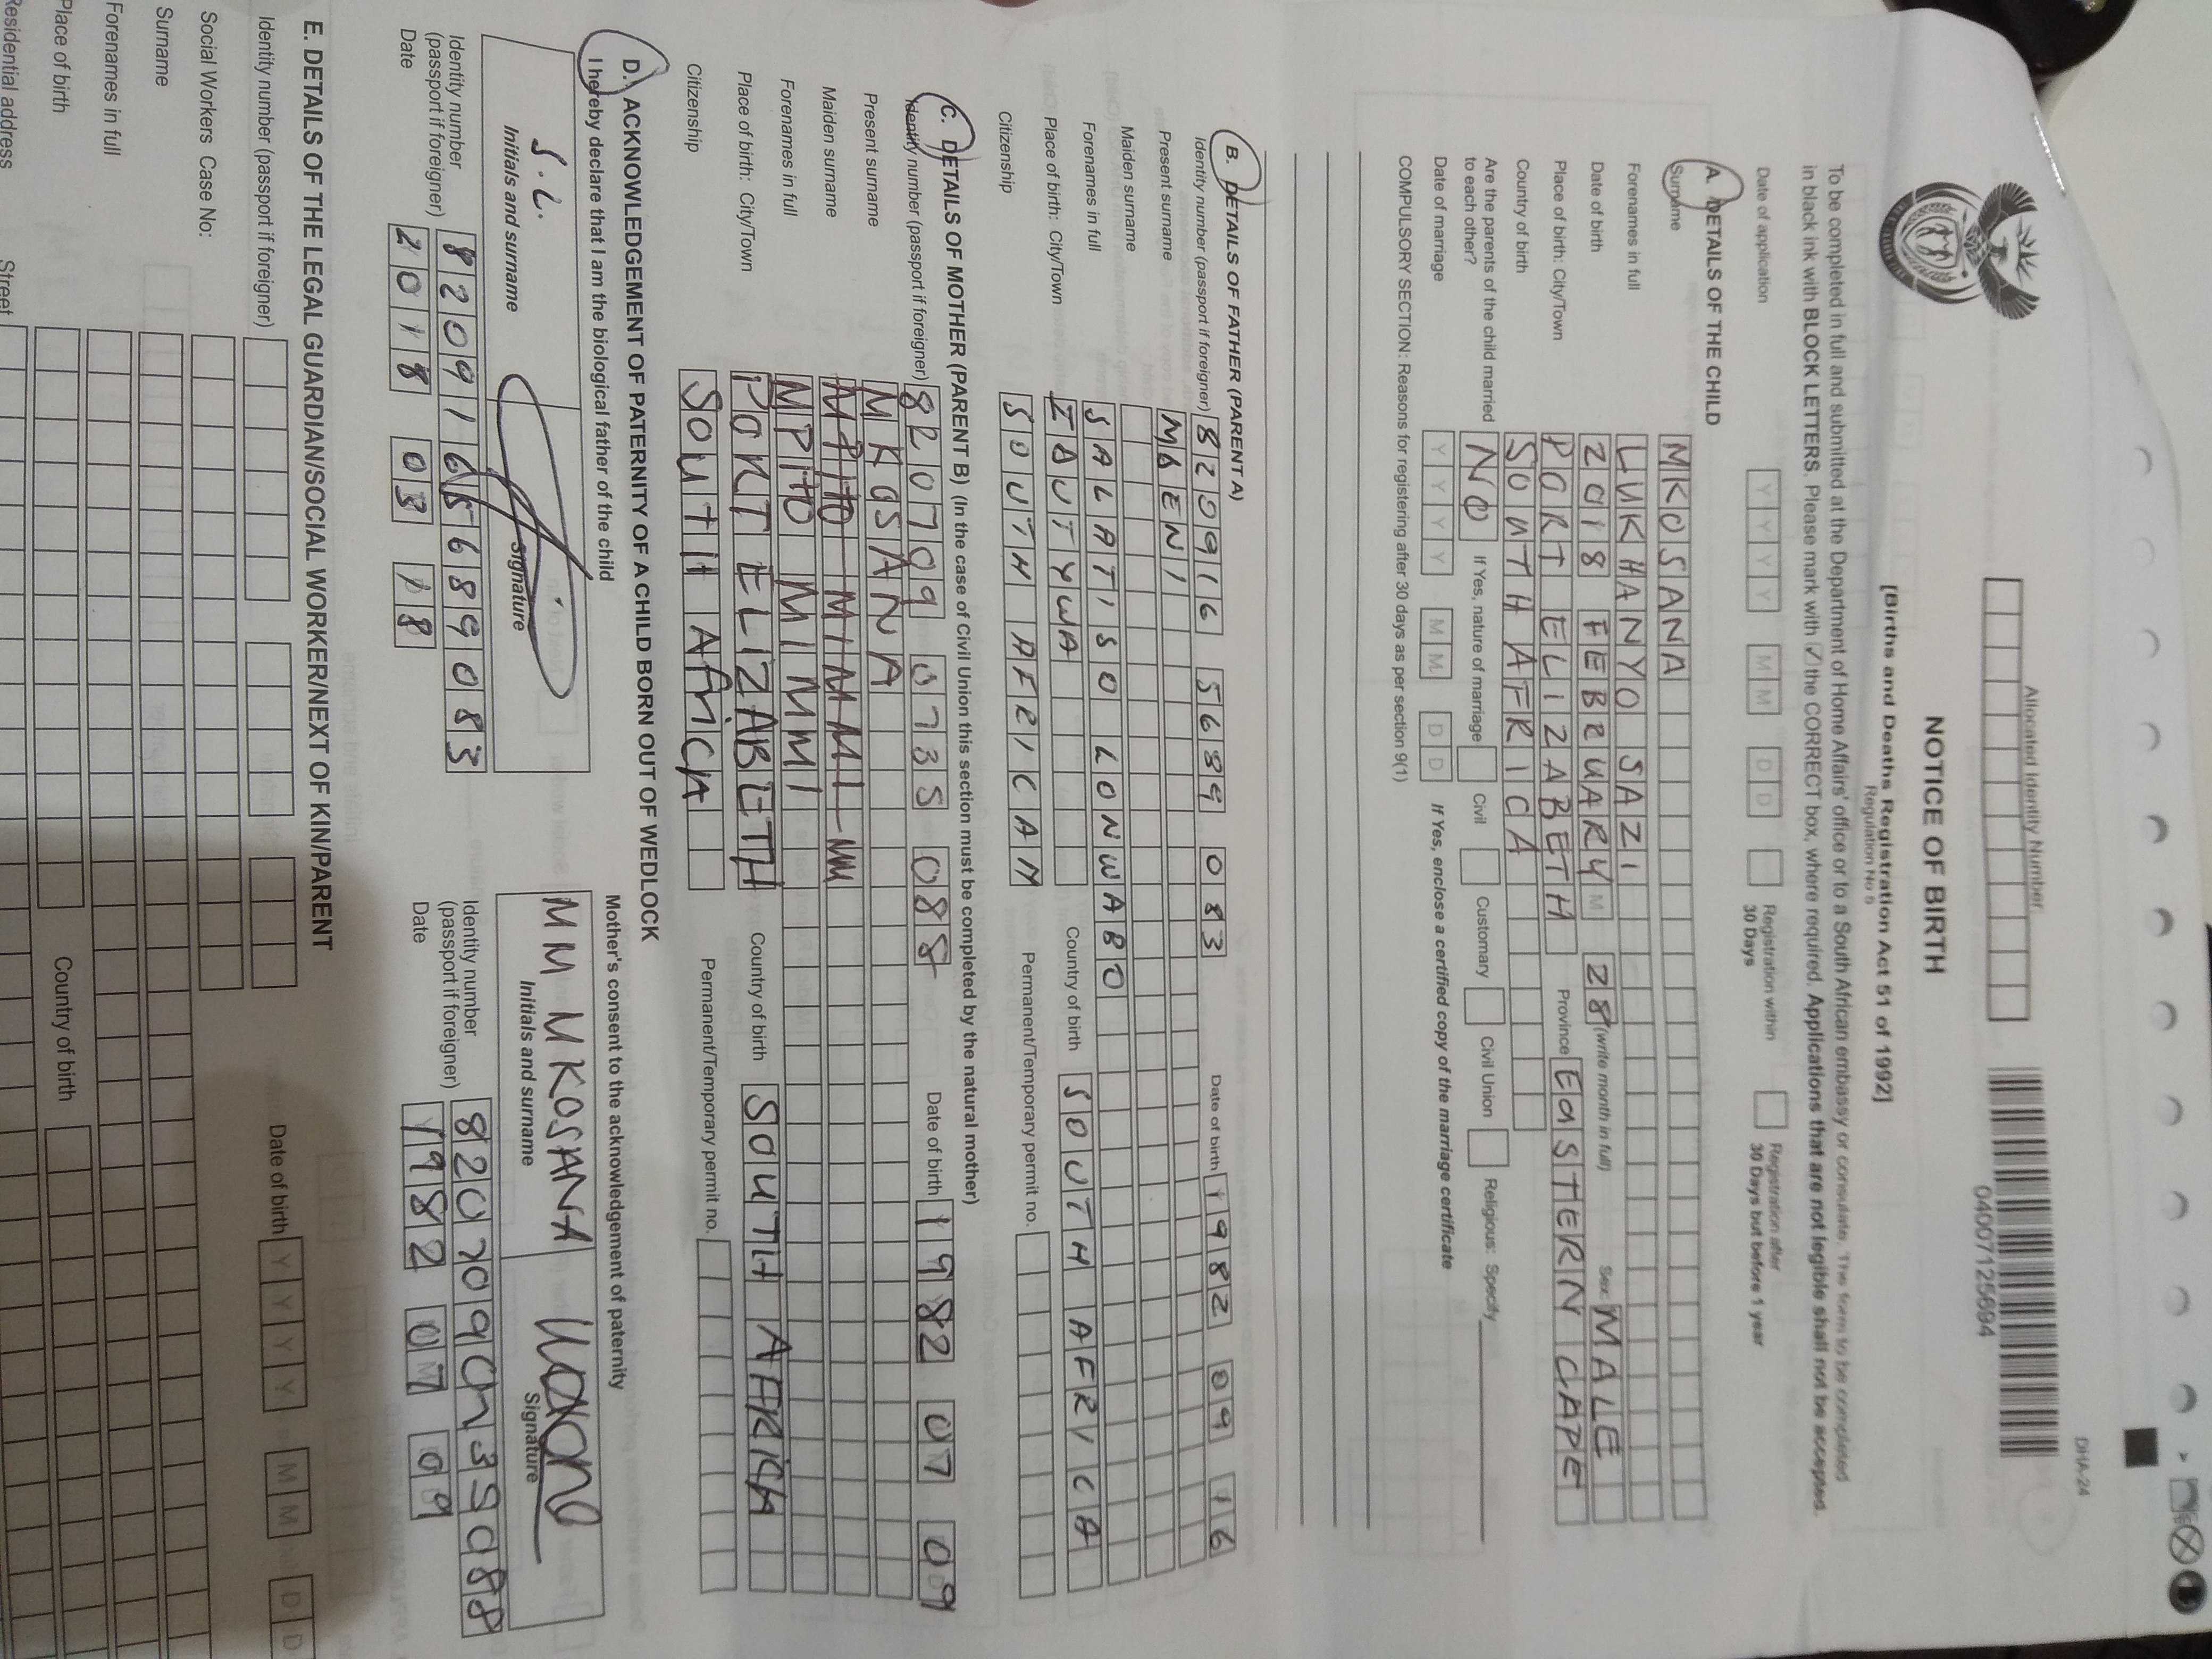 DHA-24
Allocated Identity Number
04007125694
NOTICE OF BIRTH
[Births and Deaths Registration Act 51 of 1992]
Regulation No 5
To be completed in full and submitted at the Department of Home Affairs' office or to a South African embassy or consulate. This form to be completed
in black ink with BLOCK LETTERS. Please mark with ☑ the CORRECT box, where required. Applications that are not legible shall not be accepted.
Date of application Y Y Y Y M M D D Registration within 30 Days Registration after 30 Days but before 1 year
A. DETAILS OF THE CHILD
Surname MKOSANA
Forenames in full LUKHANYO SAZI
Date of birth 2018 FEBRUARY M 28 (write month in full) Sex: MALE
Place of birth: City/Town PORT ELIZABETH Province EASTERN CAPE
Country of birth SOUTH AFRICA
Are the parents of the child married to each other? NO If Yes, nature of marriage Civil Customary Civil Union Religious: Specify
Date of marriage Y Y Y Y M M D D If Yes, enclose a certified copy of the marriage certificate
COMPULSORY SECTION: Reasons for registering after 30 days as per section 9(1)
B. DETAILS OF FATHER (PARENT A)
Identity number (passport if foreigner) 820916 5689 083 Date of birth 1982 09 16
Present surname MBENI
Maiden surname
Forenames in full SALATISO LONWABO
Place of birth: City/Town IDUTYWA Country of birth SOUTH AFRICA
Citizenship SOUTH AFRICAN Permanent/Temporary permit no.
C. DETAILS OF MOTHER (PARENT B) (In the case of Civil Union this section must be completed by the natural mother)
Identity number (passport if foreigner) 820709 0735 088 Date of birth 1982 07 09
Present surname MKOSANA
Maiden surname MPITO MIMMI
Forenames in full MPITO MIMMI
Place of birth: City/Town PORT ELIZABETH Country of birth SOUTH AFRICA
Citizenship SOUTH AfriCA Permanent/Temporary permit no.
D. ACKNOWLEDGEMENT OF PATERNITY OF A CHILD BORN OUT OF WEDLOCK
I hereby declare that I am the biological father of the child Mother's consent to the acknowledgement of paternity
S.L. MM MKOSANA
Initials and surname Signature Initials and surname Signature
Identity number (passport if foreigner) 8209165689083 Identity number (passport if foreigner) 8207090735088
Date 2018 03 18 Date 1982 07 09
E. DETAILS OF THE LEGAL GUARDIAN/SOCIAL WORKER/NEXT OF KIN/PARENT
Identity number (passport if foreigner) Date of birth Y Y Y Y M M D D
Social Workers Case No:
Surname
Forenames in full
Place of birth Country of birth
Residential address Street